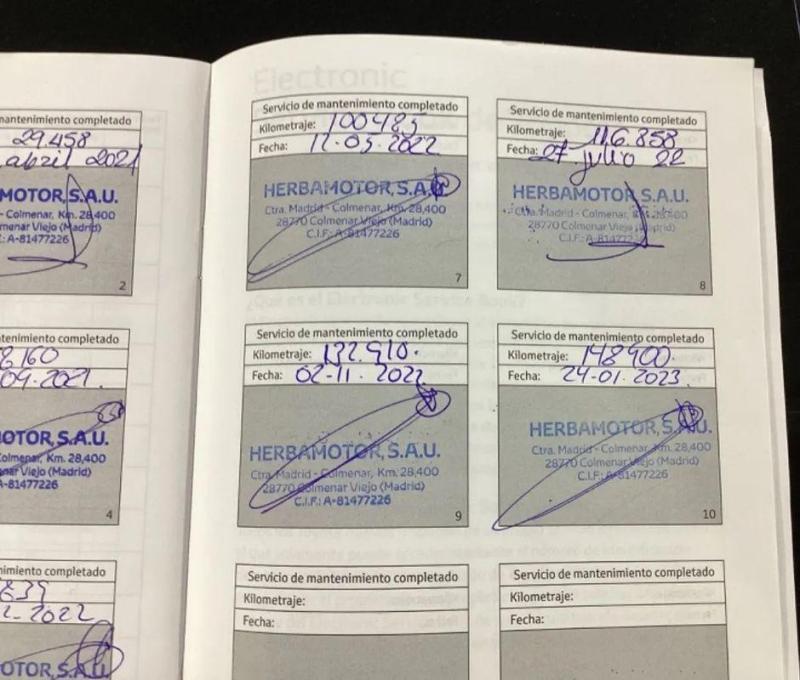 mantenimiento completado
29.458
abril 2021
MOTOR, S.A.U.
- Colmenar, Km. 28,400
menar Viejo (Madrid)
: A-81477226
2
tenimiento completado
8.160
09.2021.
OTOR, S.A.U.
Colmenar, Km. 28,400
nar Viejo (Madrid)
A-81477226
4
nimiento completado
839
2-2022
OTOR, S.A.U.
Electronic
Servicio de mantenimiento completado
Kilometraje: 100485
Fecha: 12-05-2022
HERBAMOTOR, S.A.U.
Ctra. Madrid - Colmenar, Km. 28,400
28770 Colmenar Viejo (Madrid)
C.I.F.: A-81477226
7
Servicio de mantenimiento completado
Kilometraje: 116.858
Fecha: 27 julio 22
HERBAMOTOR, S.A.U.
Ctra. Madrid - Colmenar, Km. 28,400
28770 Colmenar Viejo (Madrid)
C.I.F.: A-81477226
8
Servicio de mantenimiento completado
Kilometraje: 132.910.
Fecha: 02-11-2022
HERBAMOTOR, S.A.U.
Ctra. Madrid - Colmenar, Km. 28,400
28770 Colmenar Viejo (Madrid)
C.I.F.: A-81477226
9
Servicio de mantenimiento completado
Kilometraje: 148900.
Fecha: 24-01.2023
HERBAMOTOR, S.A.U.
Ctra. Madrid - Colmenar, Km. 28,400
28770 Colmenar Viejo (Madrid)
C.I.F.: A-81477226
10
Servicio de mantenimiento completado
Kilometraje:
Fecha:
Servicio de mantenimiento completado
Kilometraje:
Fecha: